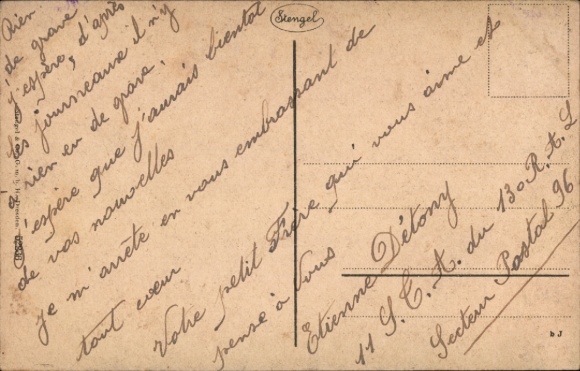 Stengel
Rien
de grave
j'espère, d'après
les journeaux il n'y
a rien eu de grave.
j'espère que j'aurais bientot
de vos nouvelles
je m'arrête en vous embrassant de
tout cœur
Votre petit Frère qui vous aime et
pense à Vous
Etienne Détony
11 S. C. A. du 130 R. A. L
Secteur Postal 96
b J